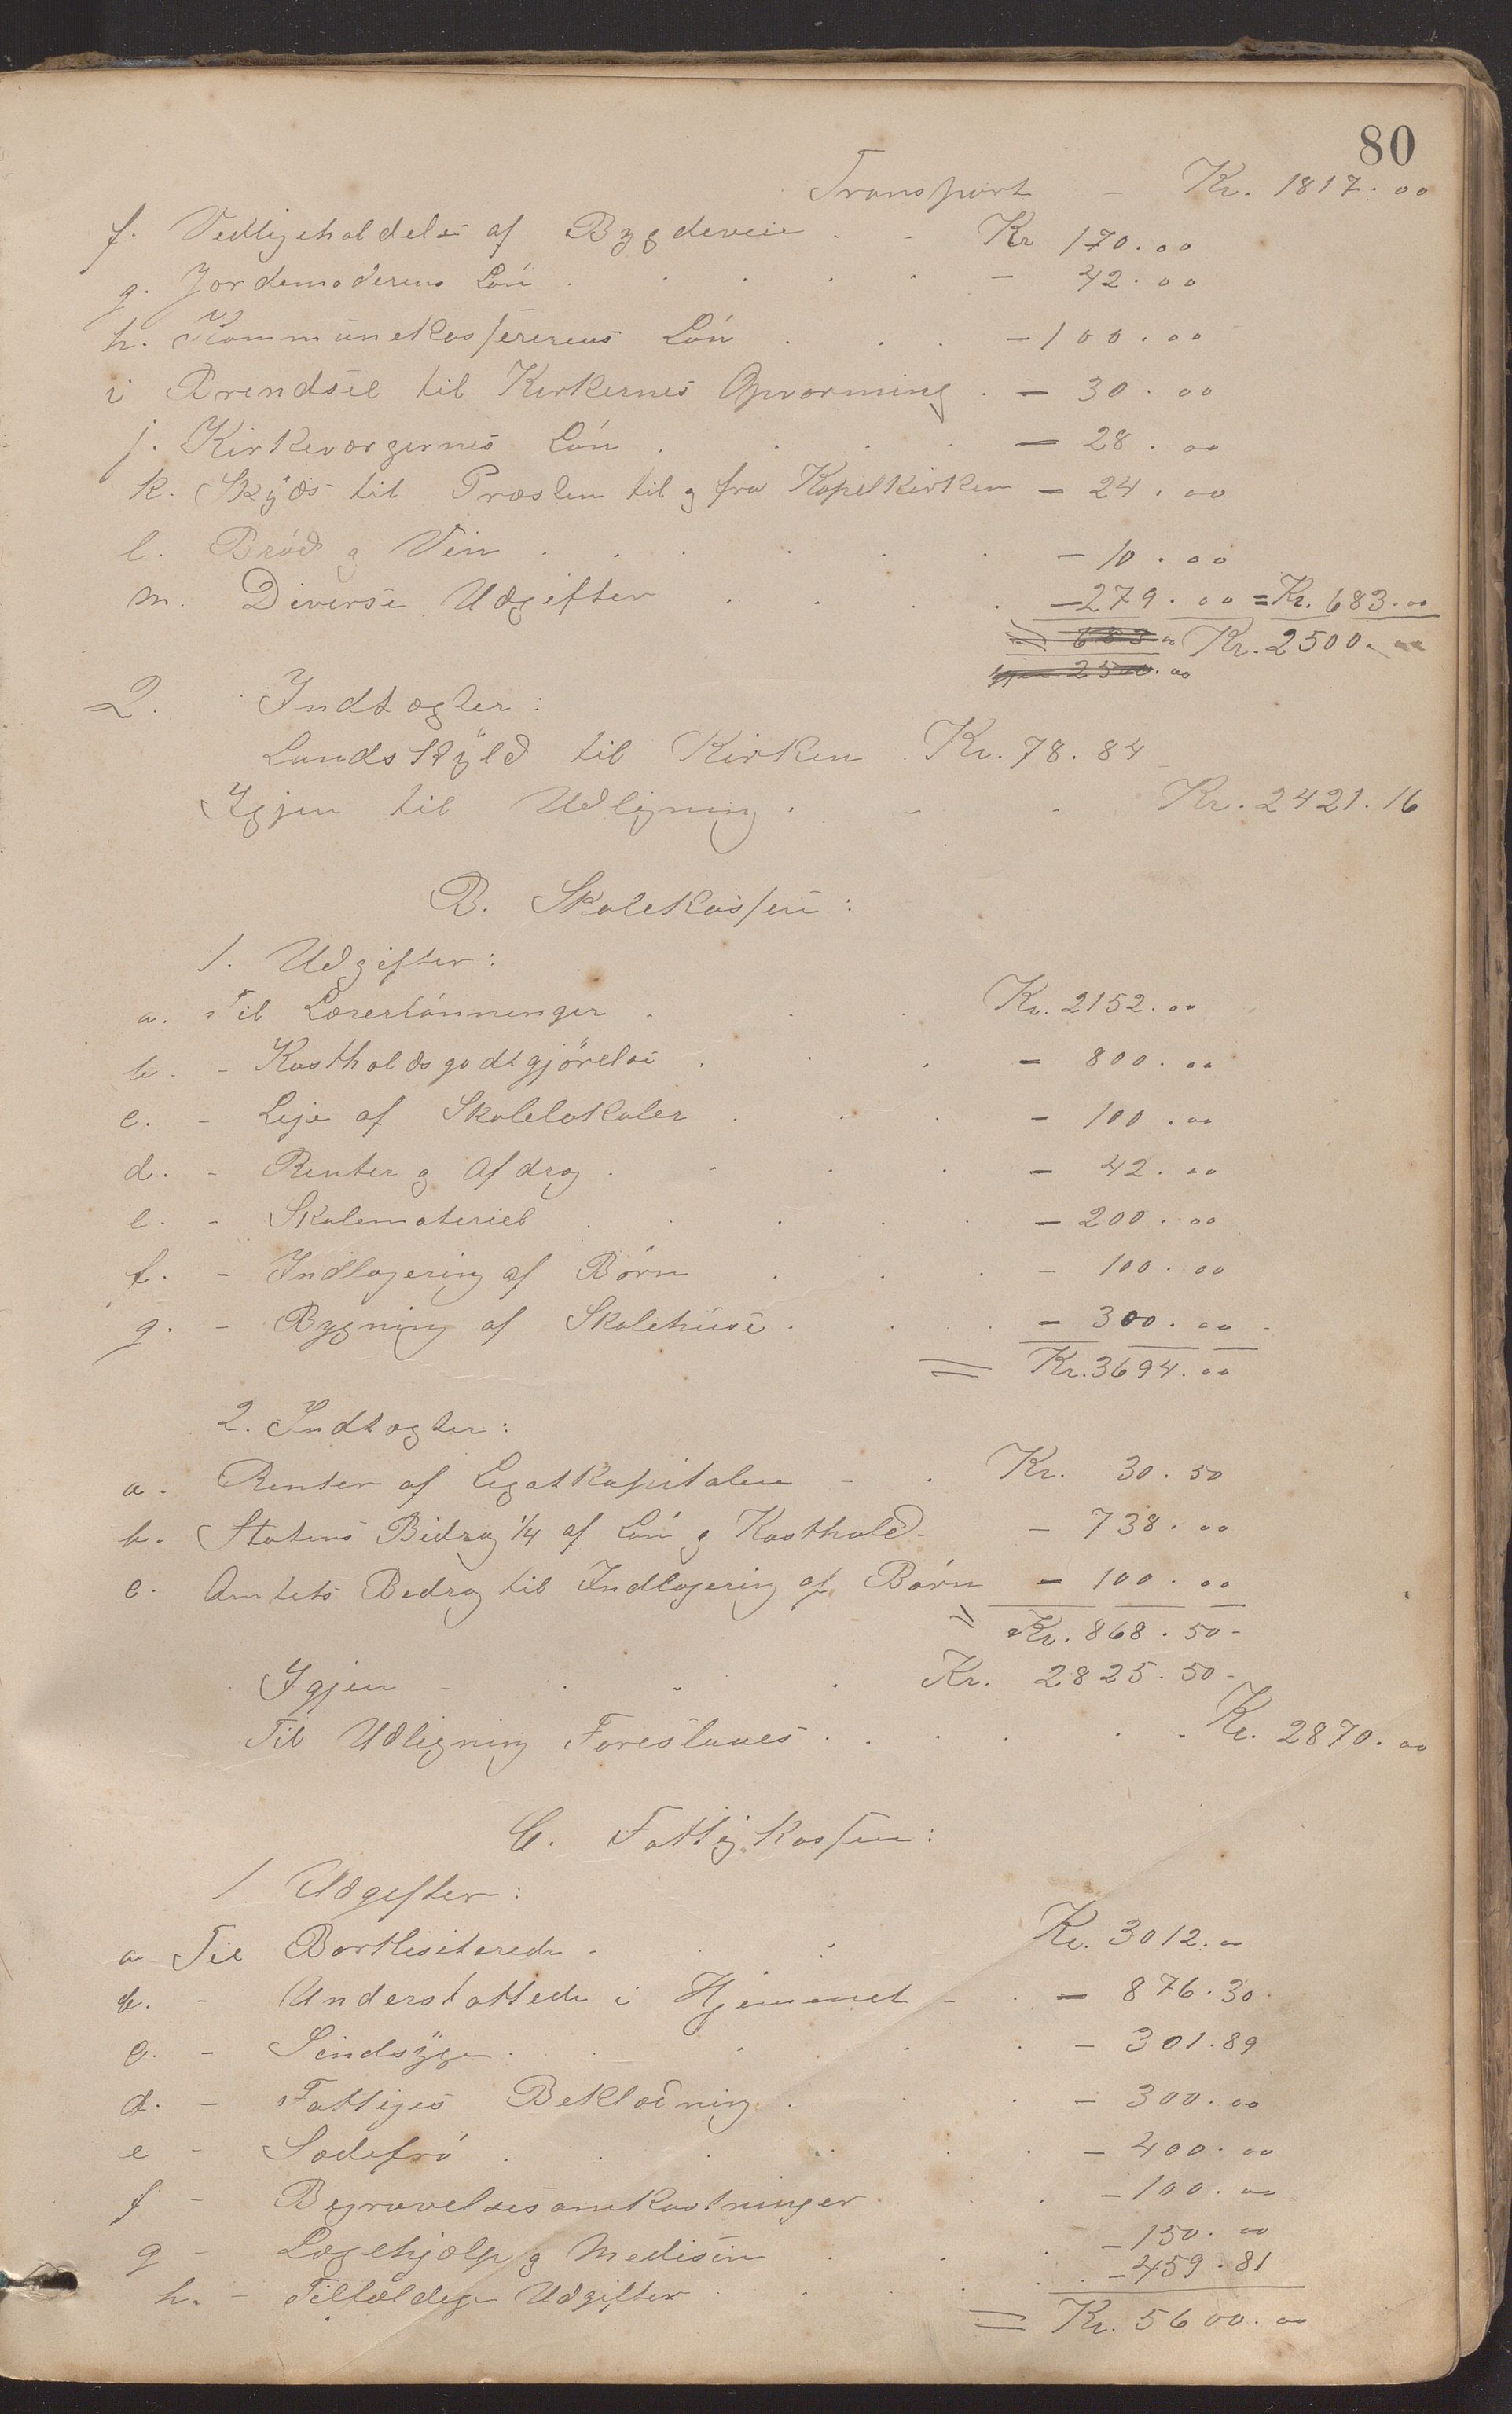 80
Transport - Kr. 1817.00
f. Vedligeholdelse af Bygdeveie . . Kr 170.00
g. Jordemoderens Løn . . . . . - 42.00
h. Kommunekasserens Løn . . . - 100.00
i Brendsel til Kirkernes Opvarming . - 30.00
j. Kirkeværgernes Løn . . . . - 28.00
k. Skyds til Præsten til og fra Kapelkirken - 24.00
l. Brød og Vin . . . . . . - 10.00
m. Diverse Udgifter . . . . - 279.00 = Kr. 683.00
= 683.00 Kr. 2500.00
2500.00
2. Indtægter:
Landskyld til Kirken . Kr. 78.84
Igjen til Udligning . - . Kr. 2421.16
B. Skolekassen:
1. Udgifter:
a. Til Lærerlønninger . . . Kr. 2152.00
b. - Kostholdsgodtgjørelse . . . - 800.00
c. - Leje af Skolelokaler . . . - 100.00
d. - Renter og Afdrag . . . . - 42.00
e. - Skolemateriel . . . . . - 200.00
f. - Indlogering af Børn . . . - 100.00
g. - Bygning af Skolehuse . . . - 300.00
= Kr. 3694.00
2. Indtægter:
a. Renter af Legatkapitalen - . Kr. 30.50
b. Statens Bidrag 1/4 af Løn og Kosthold - - 738.00
c. Amtets Bedrag til Indlogering af Børn - 100.00
= Kr. 868.50 -
Igjen - . - . Kr. 2825.50 -
Til Udligning Foreslaaes . . . . . . Kr. 2870.00
C. Fattigkassen:
1 Udgifter:
a Til Bortlisiterede . . . Kr. 3012.00
b. - Understøttede i Hjemmet - . - 876.30
c. - Sindsyge . . . . . - 301.89
d. - Fattiges Beklædning . . . - 300.00
e - Sædefrø . . . . . . - 400.00
f - Begravelsesomkostninger . . . - 100.00
g - Lægehjælp og Medisin . . . - 150.00
h. - Tilfældige Udgifter . . . . . - 459.81
= Kr. 5600.00